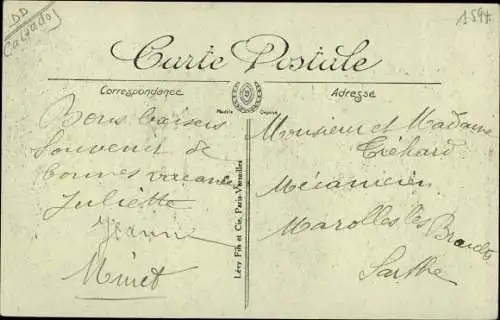 DD
Calvados
1594
Carte Postale
Correspondance
Adresse
Modèle Déposé
Bons baisers
souvenir de
bonnes vacances
Juliette
Jeanne
Minet
Lévy Fils et Cie, Paris-Versailles
Monsieur et Madame
Tréhard
Mécanicien
Marolles les Braults
Sarthe